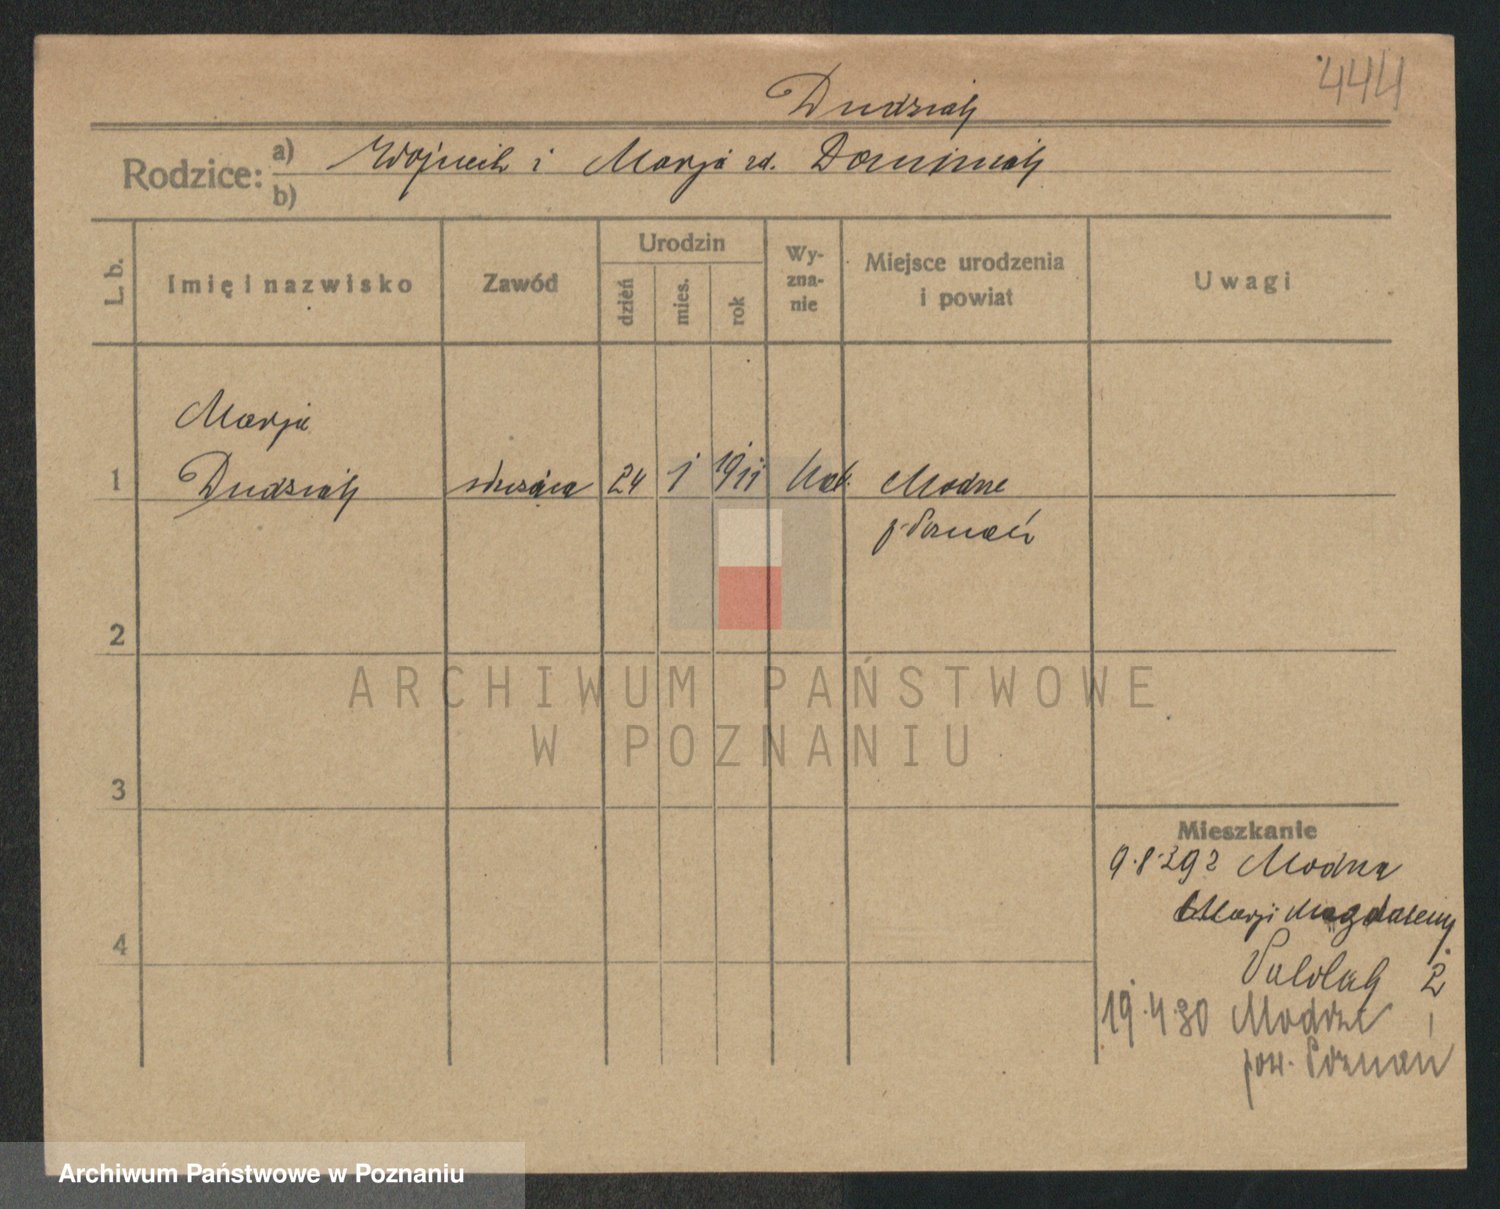 444
Dudziak
Rodzice: a) Wojciech i Marja zd.
b)
L. b.
Imię i nazwisko
Zawód
Urodzin
dzień
mies.
rok
Wy-
zna-
nie
Miejsce urodzenia
i powiat
Uwagi
Marja
1 Dudziak służąca 24 1 1911 kat. Modrze
p. Poznań
2
3
4
ARCHIWUM PAŃSTWOWE
W POZNANIU
Mieszkanie
9.8.29 z
Marji Magdaleny
2
19.4.30 Modrze
pow. Poznań
Archiwum Państwowe w Poznaniu